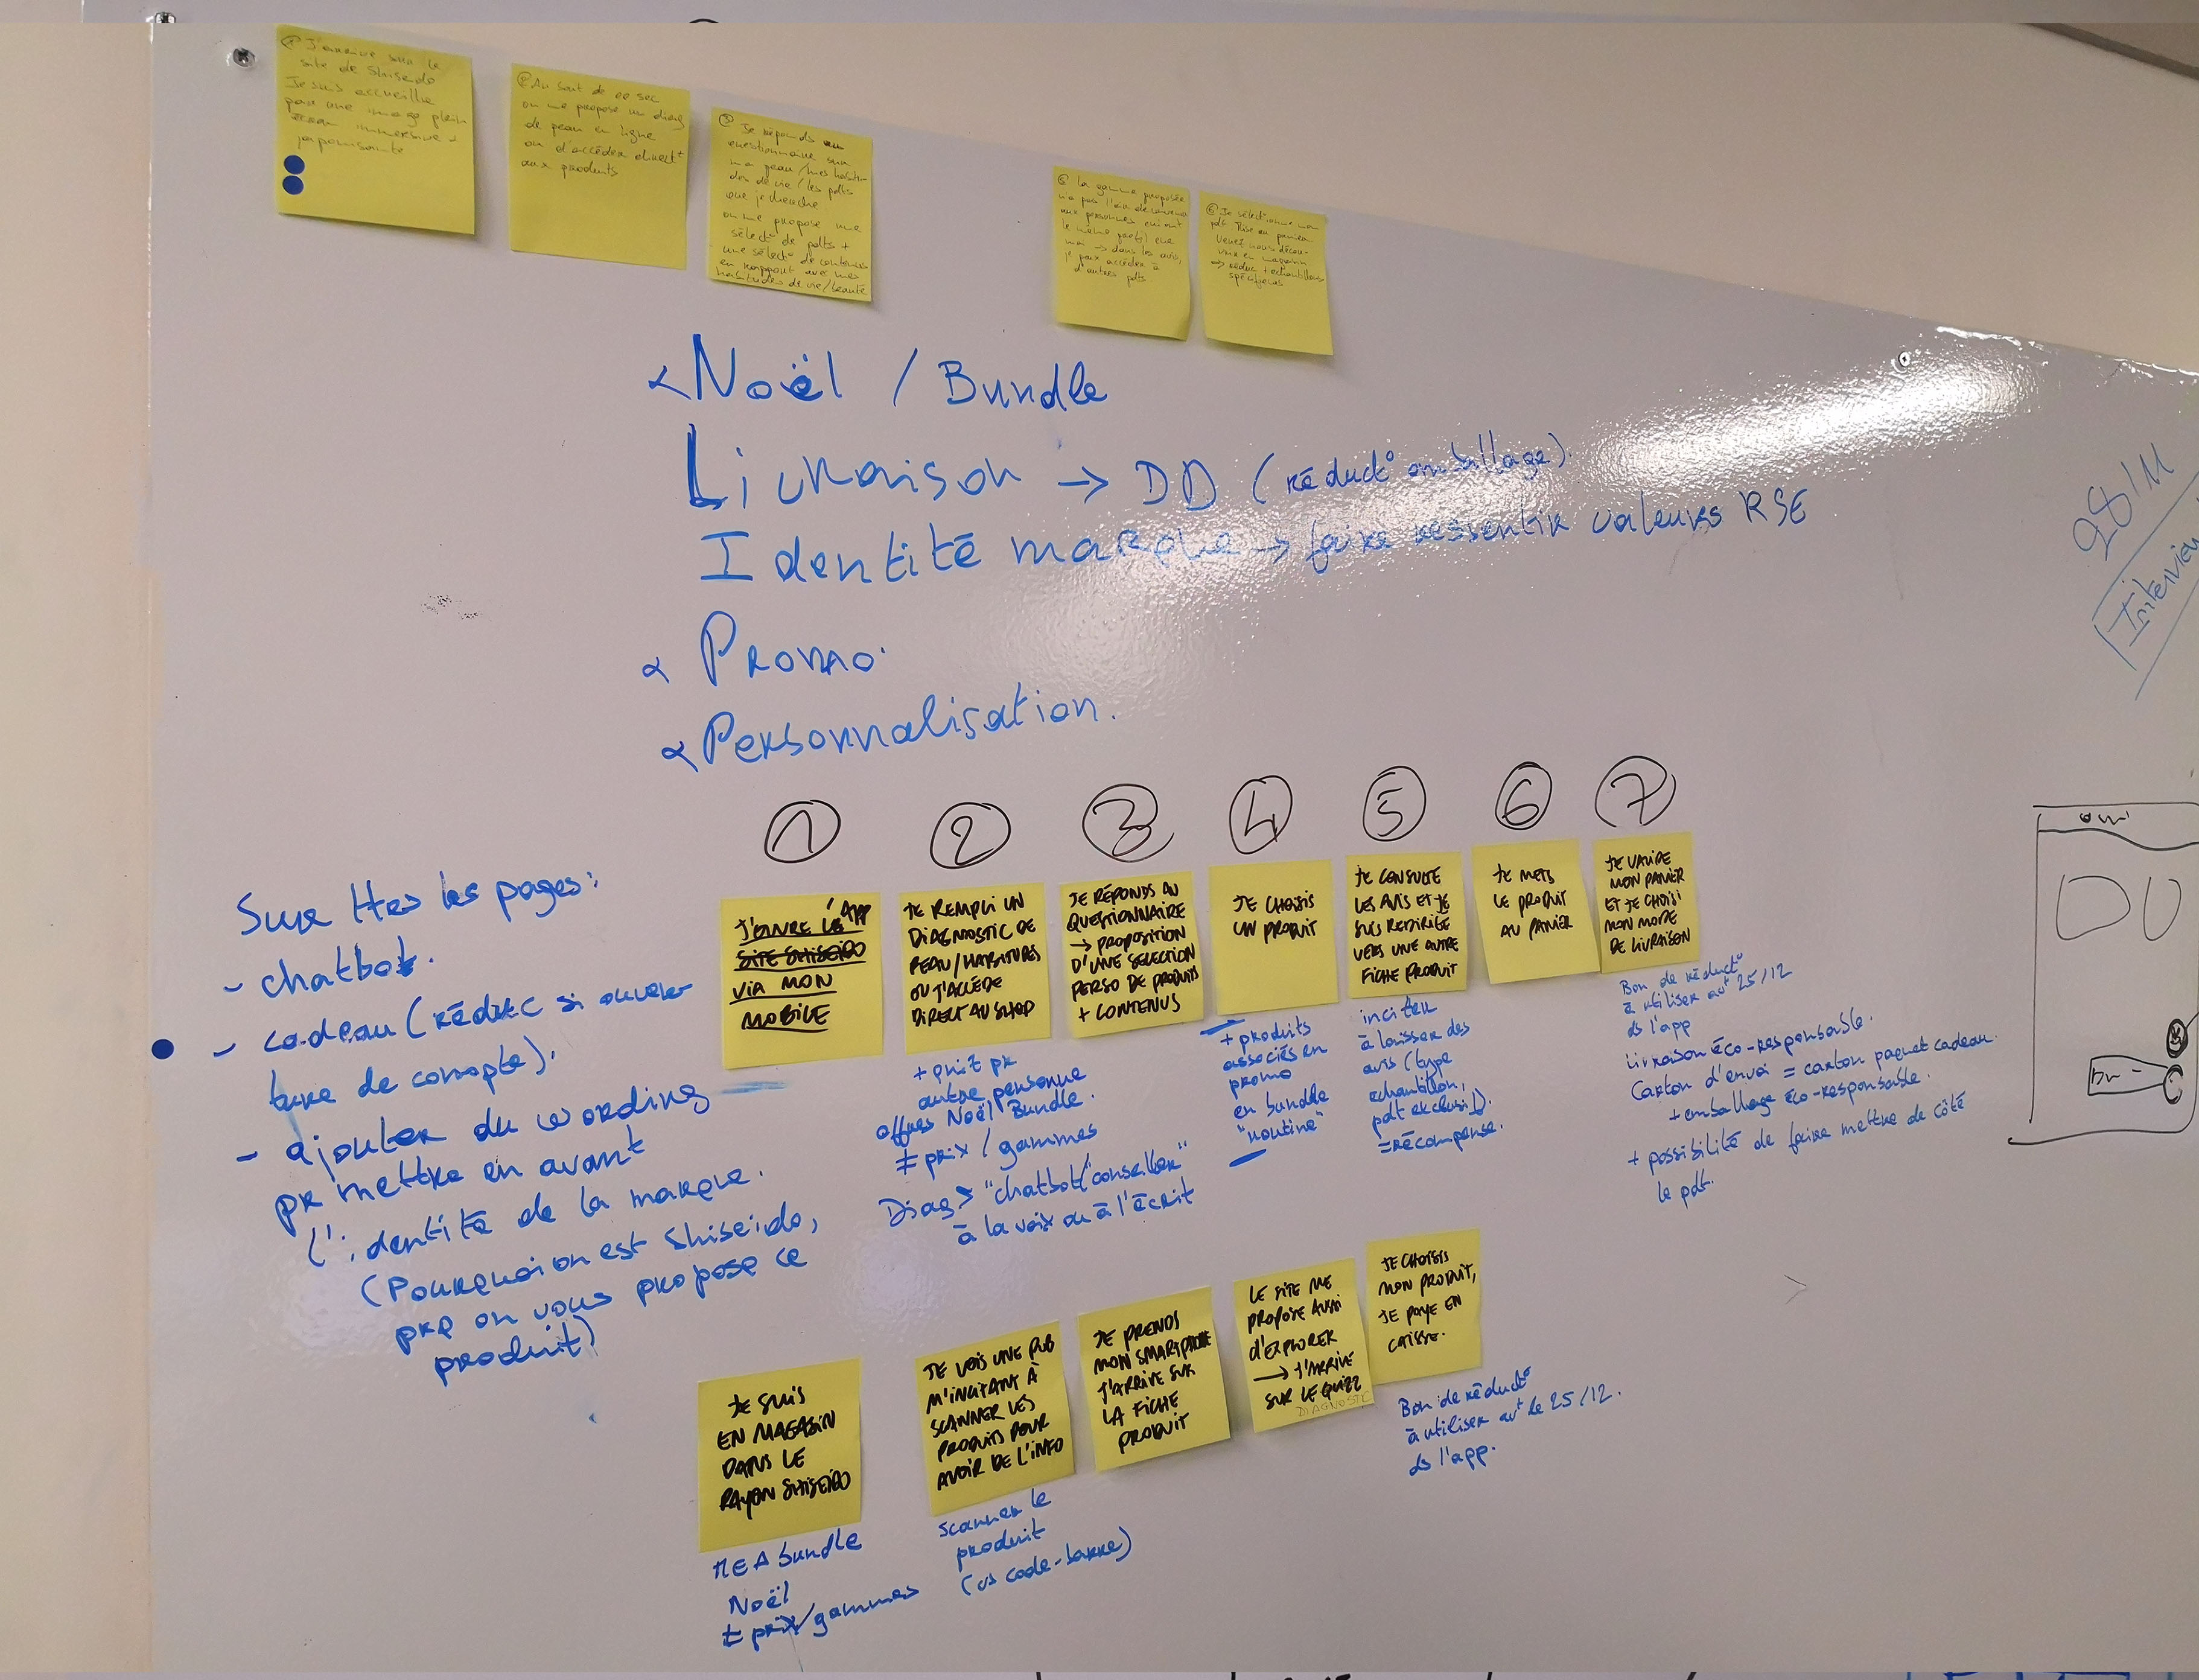 ① J'arrive sur le
site de Shiseido
Je suis accueillie
par une image plein
écran immersive +
japonisante
② Au bout de sec
on me propose un diag
de peau en ligne
ou d'accéder direct^t
aux produits
③ Je réponds au
questionnaire sur
ma peau/mes habitu-
des de vie/les pdts
que je cherche
on me propose une
sélect° de pdts +
une sélect° de contenus
en rapport avec mes
habitudes de vie/beauté
⑤ La gamme proposée
n'a pas l'air de convenir
aux personnes qui ont
le même profil que
moi → dans les avis,
je peux accéder à
d'autres pdts
⑥ Je sélectionne mon
pdt Mise au panier
Venez nous décou-
vrir en magasin
→ réduc + échantillons
spécifiques
Noël / Bundle
Livraison → DD (réduct° emballage).
Identité marque → faire ressentir valeurs RSE
Promo
Personnalisation.
28/11
Interview
Sur ttes les pages:
- chatbot.
- cadeau (réduc si ouver
ture de compte).
- ajouter du wording
pr mettre en avant
l'identité de la marque.
(Pourquoi on est Shiseido,
prq on vous propose ce
produit)
① ② ③ ④ ⑤ ⑥ ⑦
J'OUVRE L'APP
SITE SHISEIDO
VIA MON
MOBILE
JE REMPLI UN
DIAGNOSTIC DE
PEAU/HABITUDES
OU J'ACCÈDE
DIRECT AU SHOP
+ quit pr
autre personne
offres Noël Bundle.
≠ prix / gammes
Diag > "chatbot/"conseiller"
à la voix ou à l'écrit
JE RÉPONDS AU
QUESTIONNAIRE
→ PROPOSITION
D'UNE SELECTION
PERSO DE PRODUITS
+ CONTENUS
JE CHOISIS
UN PRODUIT
+ produits
associés en
promo
en bundle
"routine"
JE CONSULTE
LES AVIS ET JE
SUIS REDIRIGÉ
VERS UNE AUTRE
FICHE PRODUIT
inciter
à laisser des
avis (type
echantillon,
pdt exclusif).
= récompense.
JE METS
LE PRODUIT
AU PANIER
JE VALIDE
MON PANIER
ET JE CHOISI
MON MODE
DE LIVRAISON
Bon de réduct°
à utiliser av^t 25/12
ds l'app
Livraison éco-responsable.
Carton d'envoi = carton paquet cadeau.
+ emballage éco-responsable.
+ possibilité de faire mettre de côté
le pdt.
JE SUIS
EN MAGASIN
DANS LE
RAYON SHISEIDO
MEA bundle
Noël
≠ prix/gammes
JE VOIS UNE PUB
M'INCITANT À
SCANNER LES
PRODUITS POUR
AVOIR DE L'INFO
scanner le
produit
(vs code-barre)
JE PRENDS
MON SMARTPHONE
J'ARRIVE SUR
LA FICHE
PRODUIT
LE SITE ME
PROPOSE AUSSI
D'EXPLORER
→ J'ARRIVE
SUR LE QUIZZ
DIAGNOSTIC
JE CHOISIS
MON PRODUIT,
JE PAYE EN
CAISSE.
Bon de réduct°
à utiliser av^t le 25/12.
ds l'app.